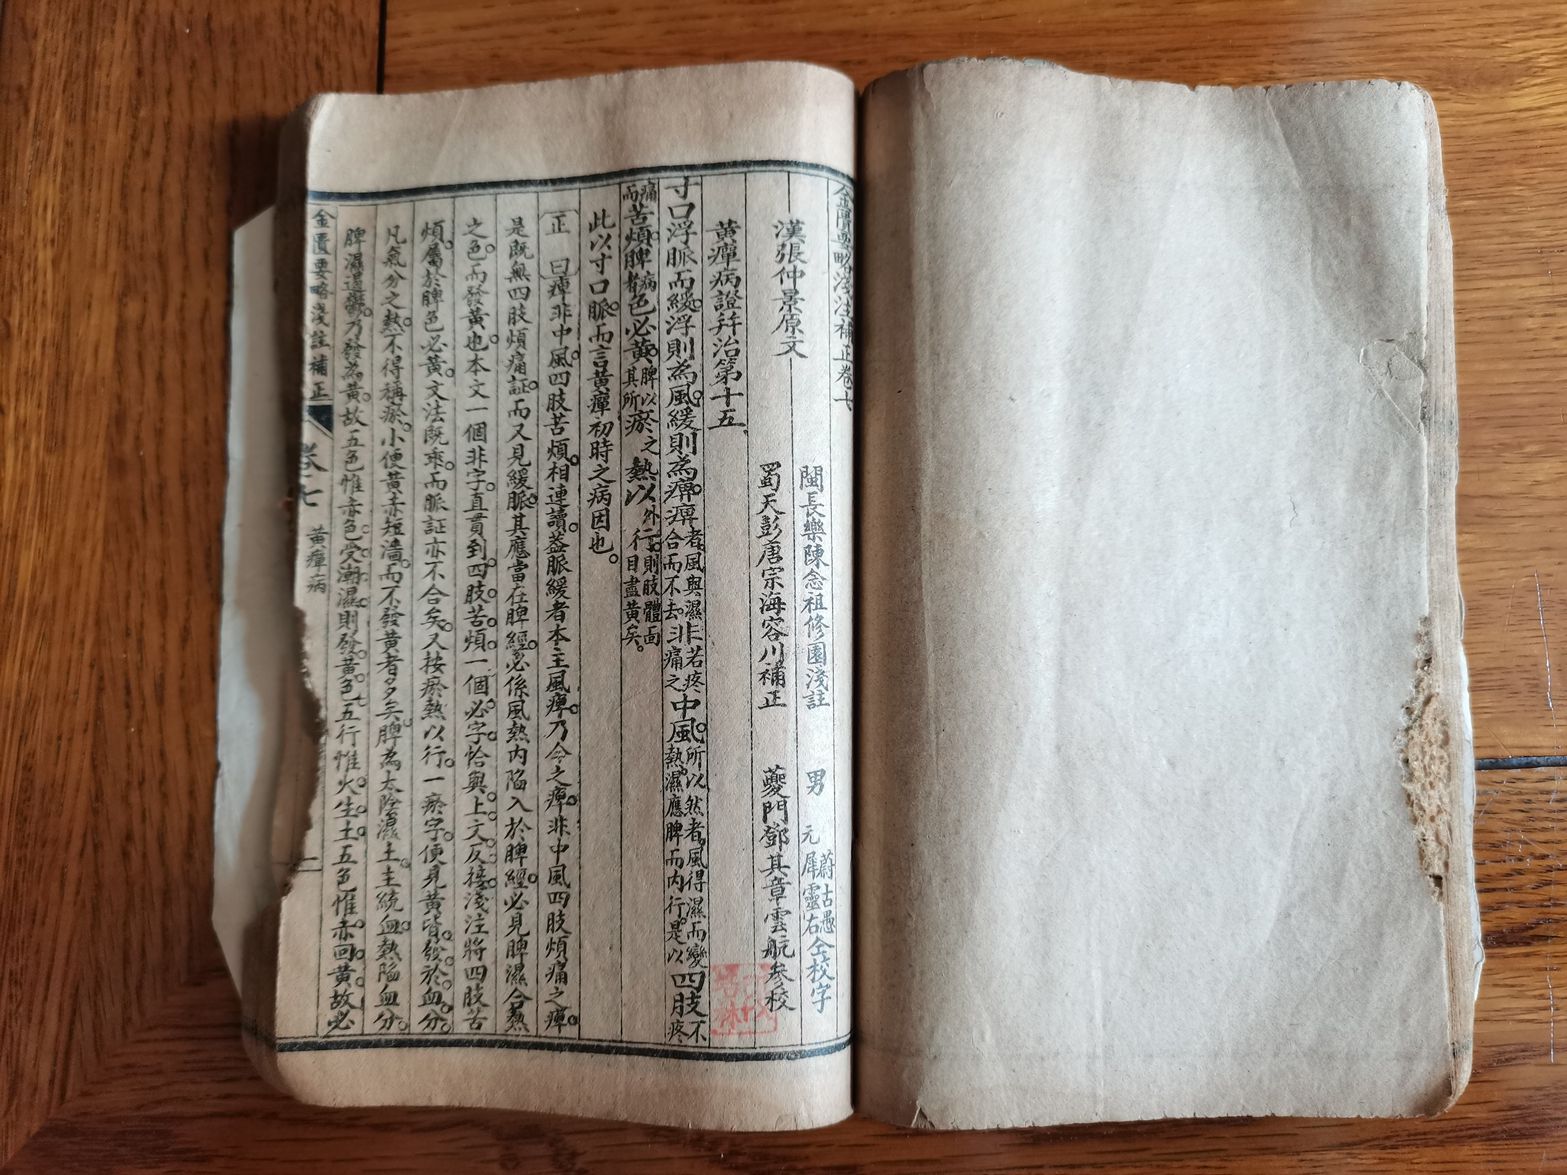 金匱要略淺注補正卷七
漢張仲景原文
閩長樂陳念祖修園淺註 男 元 蔚古愚 犀靈石 仝校字
蜀天彭唐宗海容川補正 夔門鄧其章雲航參校
黃癉病證并治第十五
寸口浮脈而緩。浮則為風。緩則為痹。痹者風與濕合而不去。非若疼痛之中風。所以然者。風得濕而變熱。濕應脾而內行。是以四肢不疼
痛而苦煩。脾病者色必黃。脾以其所瘀之熱以外行。則肢體面目盡黃矣。
此以寸口脈。而言黃癉初時之病因也。
正 曰痺非中風。四肢苦煩。相連讀。蓋脈緩者本主風痺。乃今之痺。非中風四肢煩痛之痺。
是既無四肢煩痛証。而又見緩脈。其應當在脾經。必係風熱內陷入於脾經。必見脾濕合熱
之色。而發黃也。本文一個非字。直貫到四肢苦煩。一個必字。恰與上文反接。淺注將四肢苦
煩。屬於脾色必黃。文法既乖。而脈証亦不合矣。又按瘀熱以行。一瘀字。便見黃皆發於血分。
凡氣分之熱。不得稱瘀。小便黃赤短濇。而不發黃者多矣。脾為太陰濕土。主統血。熱陷血分。
脾濕遏鬱。乃發為黃。故五色惟赤色。受潮濕。則發黃色。五行惟火生土。五色惟赤回黃。故必
金匱要略淺註補正
卷七 黃癉病
一